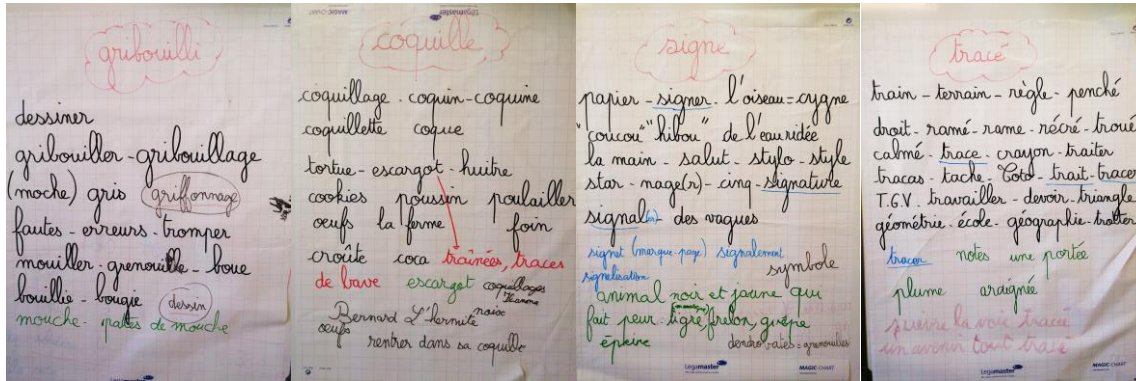 gribouilli
dessiner
gribouiller - gribouillage
(moche) gris griffonnage
fautes - erreurs - tromper
mouiller - grenouille - boue
bouillie - bougie dessin
mouche - pattes de mouche
Legamaster
MAGIC-CHART
Legamaster
coquille
coquillage - coquin - coquine
coquillette coque
tortue - escargot - huitre
cookies poussin poulailler
oeufs la ferme foin
croûte coca traînées, traces
de bave escargot coquillages
noix
Bernard L'hermite
oeufs
rentrer dans sa coquille
signe
papier - signer - l'oiseau = cygne
"coucou" "hibou" de l'eau ridée
la main - salut - stylo - style
star - nage(r) - cinq - signature
signal(er) - des vagues
signet (marque-page) signalement
signalisation
symbole
animal noir et jaune qui
fait peur : tigre, frelon, guêpe
épeire
dendrobates = grenouilles
Legamaster
MAGIC-CHART
tracé
train - terrain - règle - penché
droit - ramé - rame - récré - troué
calmé - trace - crayon - traiter
tracas - tache - Toto - trait - tracer
T.G.V. travailler - devoir - triangle
géométrie - école - géographie - trotter
tracer notes une portée
plume araignée
suivre la voie tracée
un avenir tout tracé
Legamaster
MAGIC-CHART